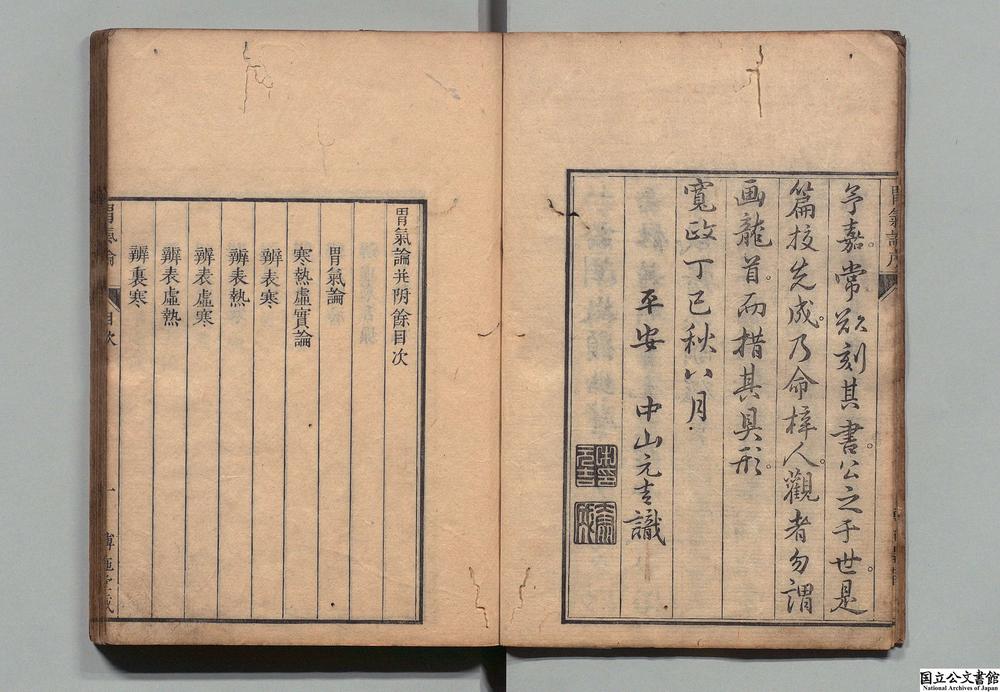 予嘉常欲刻其書。公之于世。是
篇按先成。乃命梓人。觀者勿謂
画龍首。而措其具形。
寬政丁巳秋八月
平安 中山元吉識
胃氣論并附餘目次
胃氣論
寒熱虛實論
辨表寒
辨表熱
辨表虛寒
辨表虛熱
辨裏寒
胃氣論
目次
一
国立公文書館
National Archives of Japan